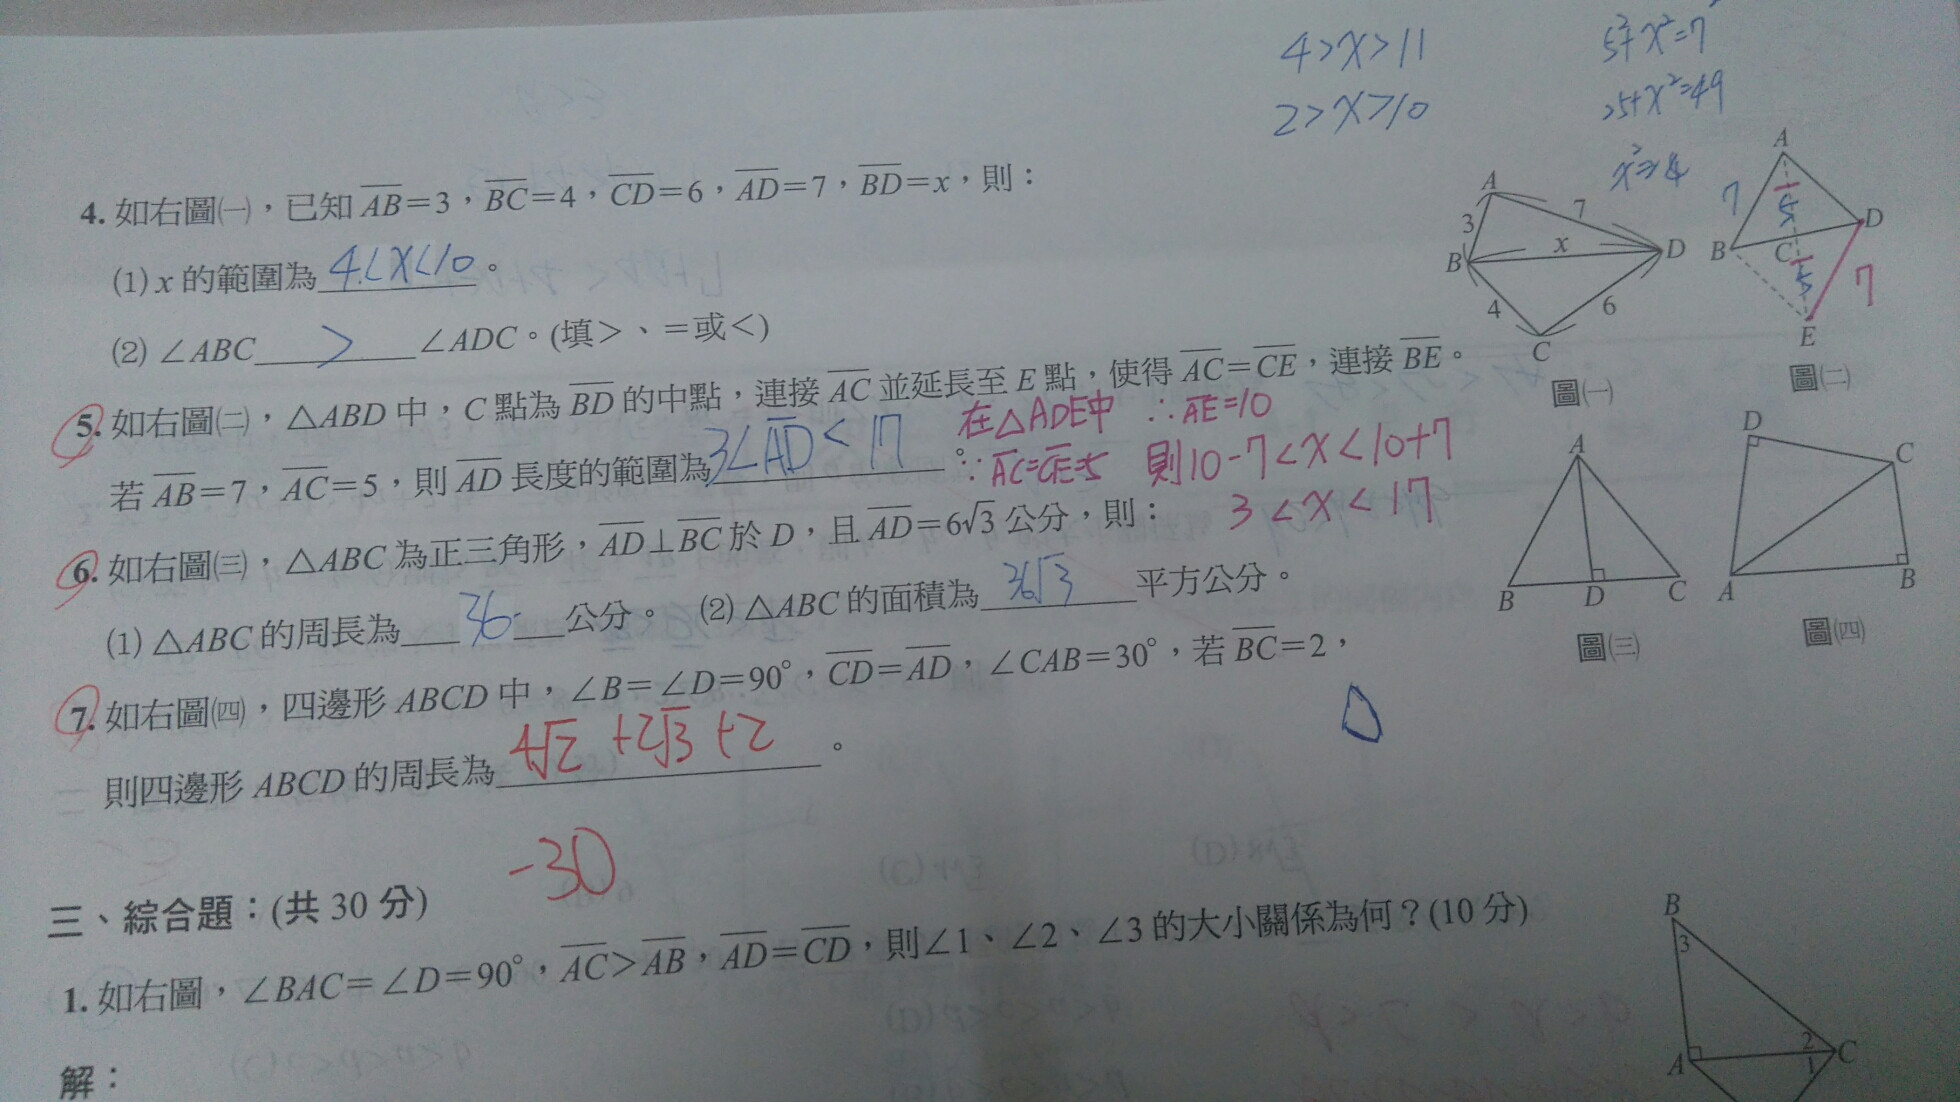 4>x>11
2>x>10
5²+x²=7²
25+x²=49
4. 如右圖㈠，已知 AB=3，BC=4，CD=6，AD=7，BD=x，則：
(1) x 的範圍為 4<x<10。
(2) ∠ABC > ∠ADC。(填>、=或<)
A
3
7
B
x
D
4
6
C
圖㈠
A
7
5
B
C
D
5
7
E
圖㈡
5. 如右圖㈡，△ABD 中，C 點為 BD 的中點，連接 AC 並延長至 E 點，使得 AC=CE，連接 BE。
若 AB=7，AC=5，則 AD 長度的範圍為 3<AD<17。
在△ADE中 ∴AE=10
∵AC=CE=5 則10-7<x<10+7
3<x<17
6. 如右圖㈢，△ABC 為正三角形，AD⊥BC 於 D，且 AD=6√3 公分，則：
(1) △ABC 的周長為 36 公分。 (2) △ABC 的面積為 36√3 平方公分。
A
B
D
C
圖㈢
D
C
A
B
圖㈣
7. 如右圖㈣，四邊形 ABCD 中，∠B=∠D=90°，CD=AD，∠CAB=30°，若 BC=2，
則四邊形 ABCD 的周長為 4√2+2√3+2。
-30
三、綜合題：(共 30 分)
1. 如右圖，∠BAC=∠D=90°，AC>AB，AD=CD，則∠1、∠2、∠3 的大小關係為何？(10 分)
解：
B
3
A
2
1
C